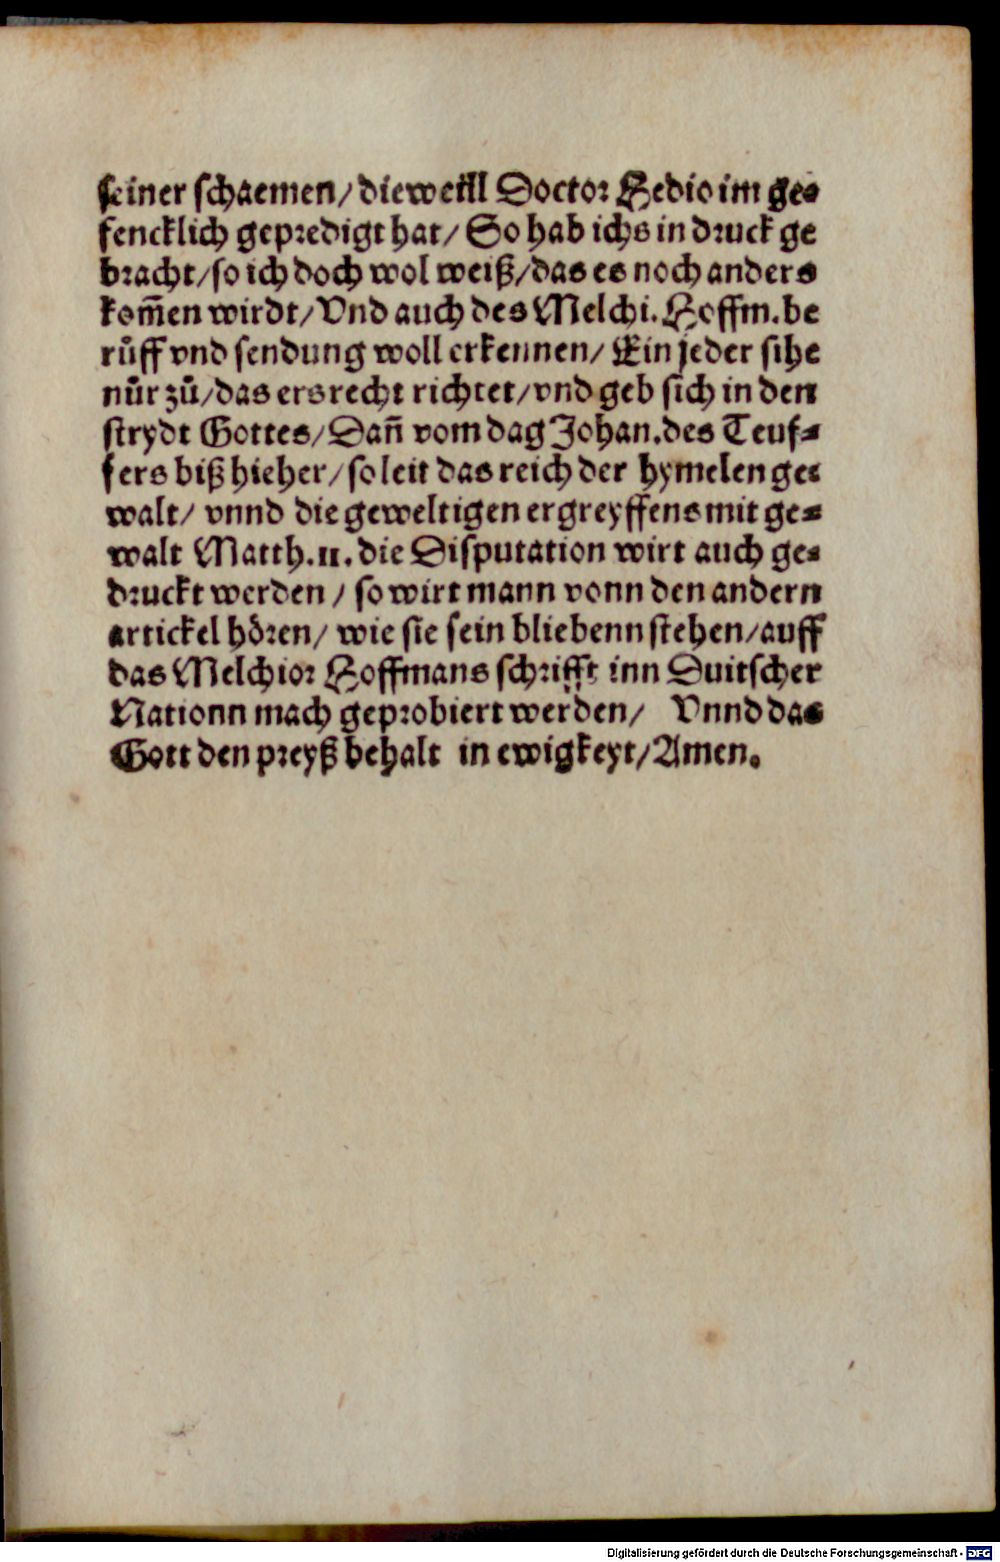 seiner schaemen/ dieweill Doctor Hedio im ge⸗
fencklich gepredigt hat/ So hab ichs in druck ge
bracht/ so ich doch wol weiß/ das es noch anders
kom̃en wirdt/ Vnd auch des Melchi. Hoffm. be
růff vnd sendung woll erkennen/ Ein jeder sihe
nůr zů/ das ers recht richtet/ vnd geb sich in den
strydt Gottes/ Dañ vom dag Johan. des Teuf⸗
fers biß hieher/ so leit das reich der hymelen ge⸗
walt/ vnnd die geweltigen ergreyffens mit ge⸗
walt Matth. 11. die Disputation wirt auch ge⸗
druckt werden/ so wirt mann vonn den andern
artickel hören/ wie sie sein bliebenn stehen/ auff
das Melchior Hoffmans schrifft inn Duitscher
Nationn mach geprobiert werden/ Vnnd das
Gott den preyß behalt in ewigkeyt/ Amen.
Digitalisierung gefördert durch die Deutsche Forschungsgemeinschaft - DFG